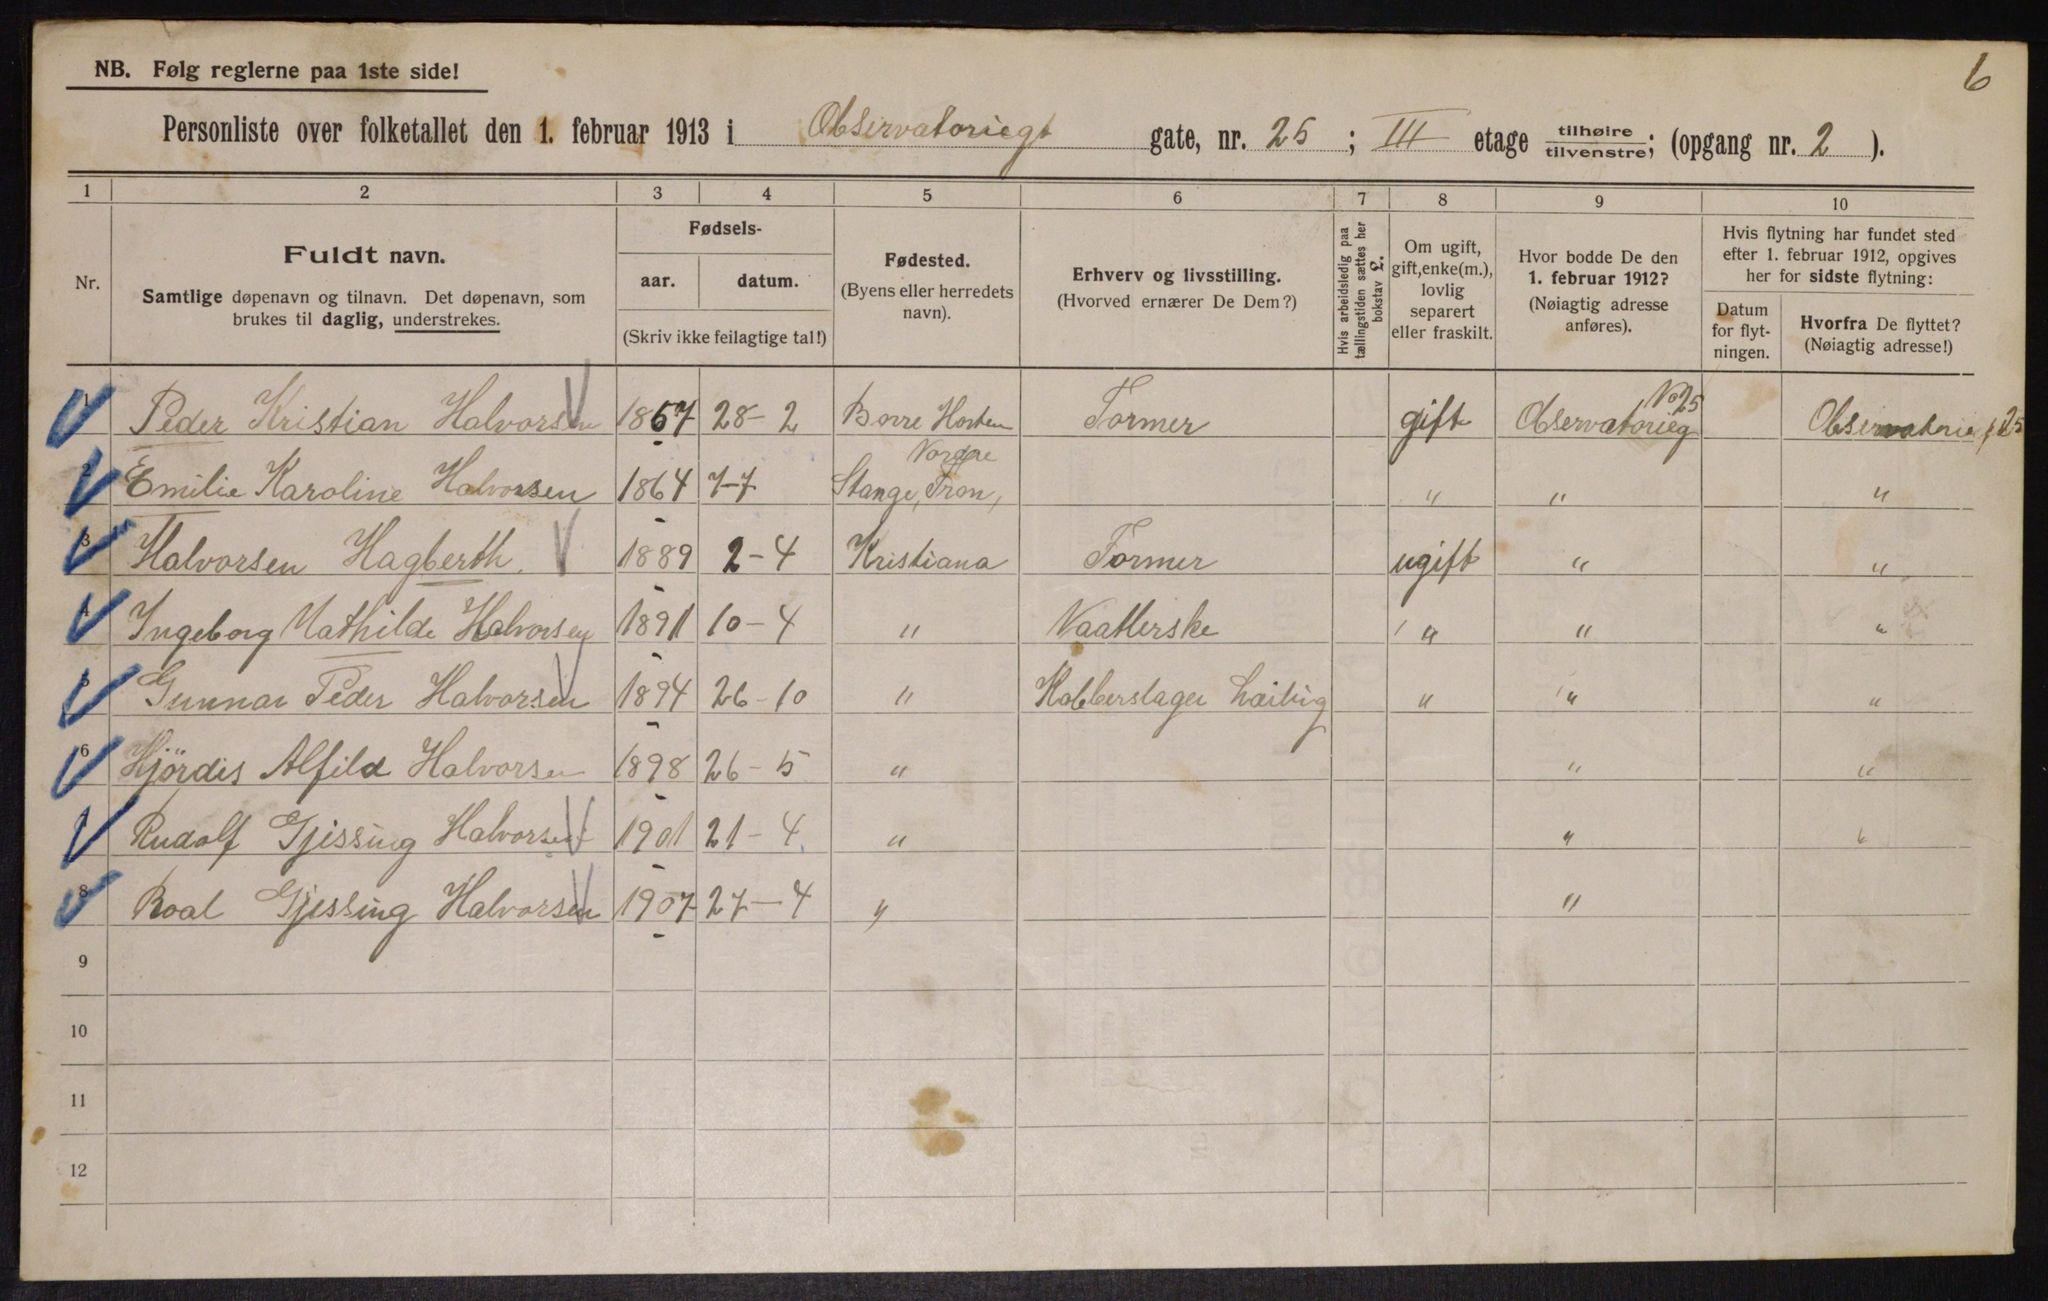 6
NB. Følg reglerne paa 1ste side!
Personliste over folketallet den 1. februar 1913 i Observatoriegt gate, nr. 25 ; III etage tilhøire / tilvenstre; (opgang nr. 2 ).
1 2 3 4 5 6 7 8 9 10
Nr.
Fuldt navn.
Samtlige døpenavn og tilnavn. Det døpenavn, som
brukes til daglig, understrekes.
Fødsels-
aar. datum.
(Skriv ikke feilagtige tal!)
Fødested.
(Byens eller herredets
navn).
Erhverv og livsstilling.
(Hvorved ernærer De Dem?)
Hvis arbeidsledig paa
tællingstiden sættes her
bokstav L.
Om ugift,
gift, enke(m.),
lovlig
separert
eller fraskilt.
Hvor bodde De den
1. februar 1912?
(Nøiagtig adresse
anføres).
Hvis flytning har fundet sted
efter 1. februar 1912, opgives
her for sidste flytning:
Datum
for flyt-
ningen.
Hvorfra De flyttet?
(Nøiagtig adresse!)
1 Peder Kristian Halvorsen 1867 28-2 Borre Horten Former gift Observatorieg No 25 Observatorieg 25
2 Emilie Karoline Halvorsen 1864 7-7 Stange, " " "
3 Halvorsen Hagberth. 1889 2-4 Kristiana Former ugift " "
4 Ingeborg Mathilde Halvorsen 1891 10-4 " " " "
5 Gunnar Peder Halvorsen 1894 26-10 " Kobberslager " " "
6 Hjördis Alfild Halvorsen 1898 26-5 " " "
7 Rudolf Gjessing Halvorsen 1901 21-4 " " "
8 Roal Gjessing Halvorsen 1907 27-4 " "
9
10
11
12